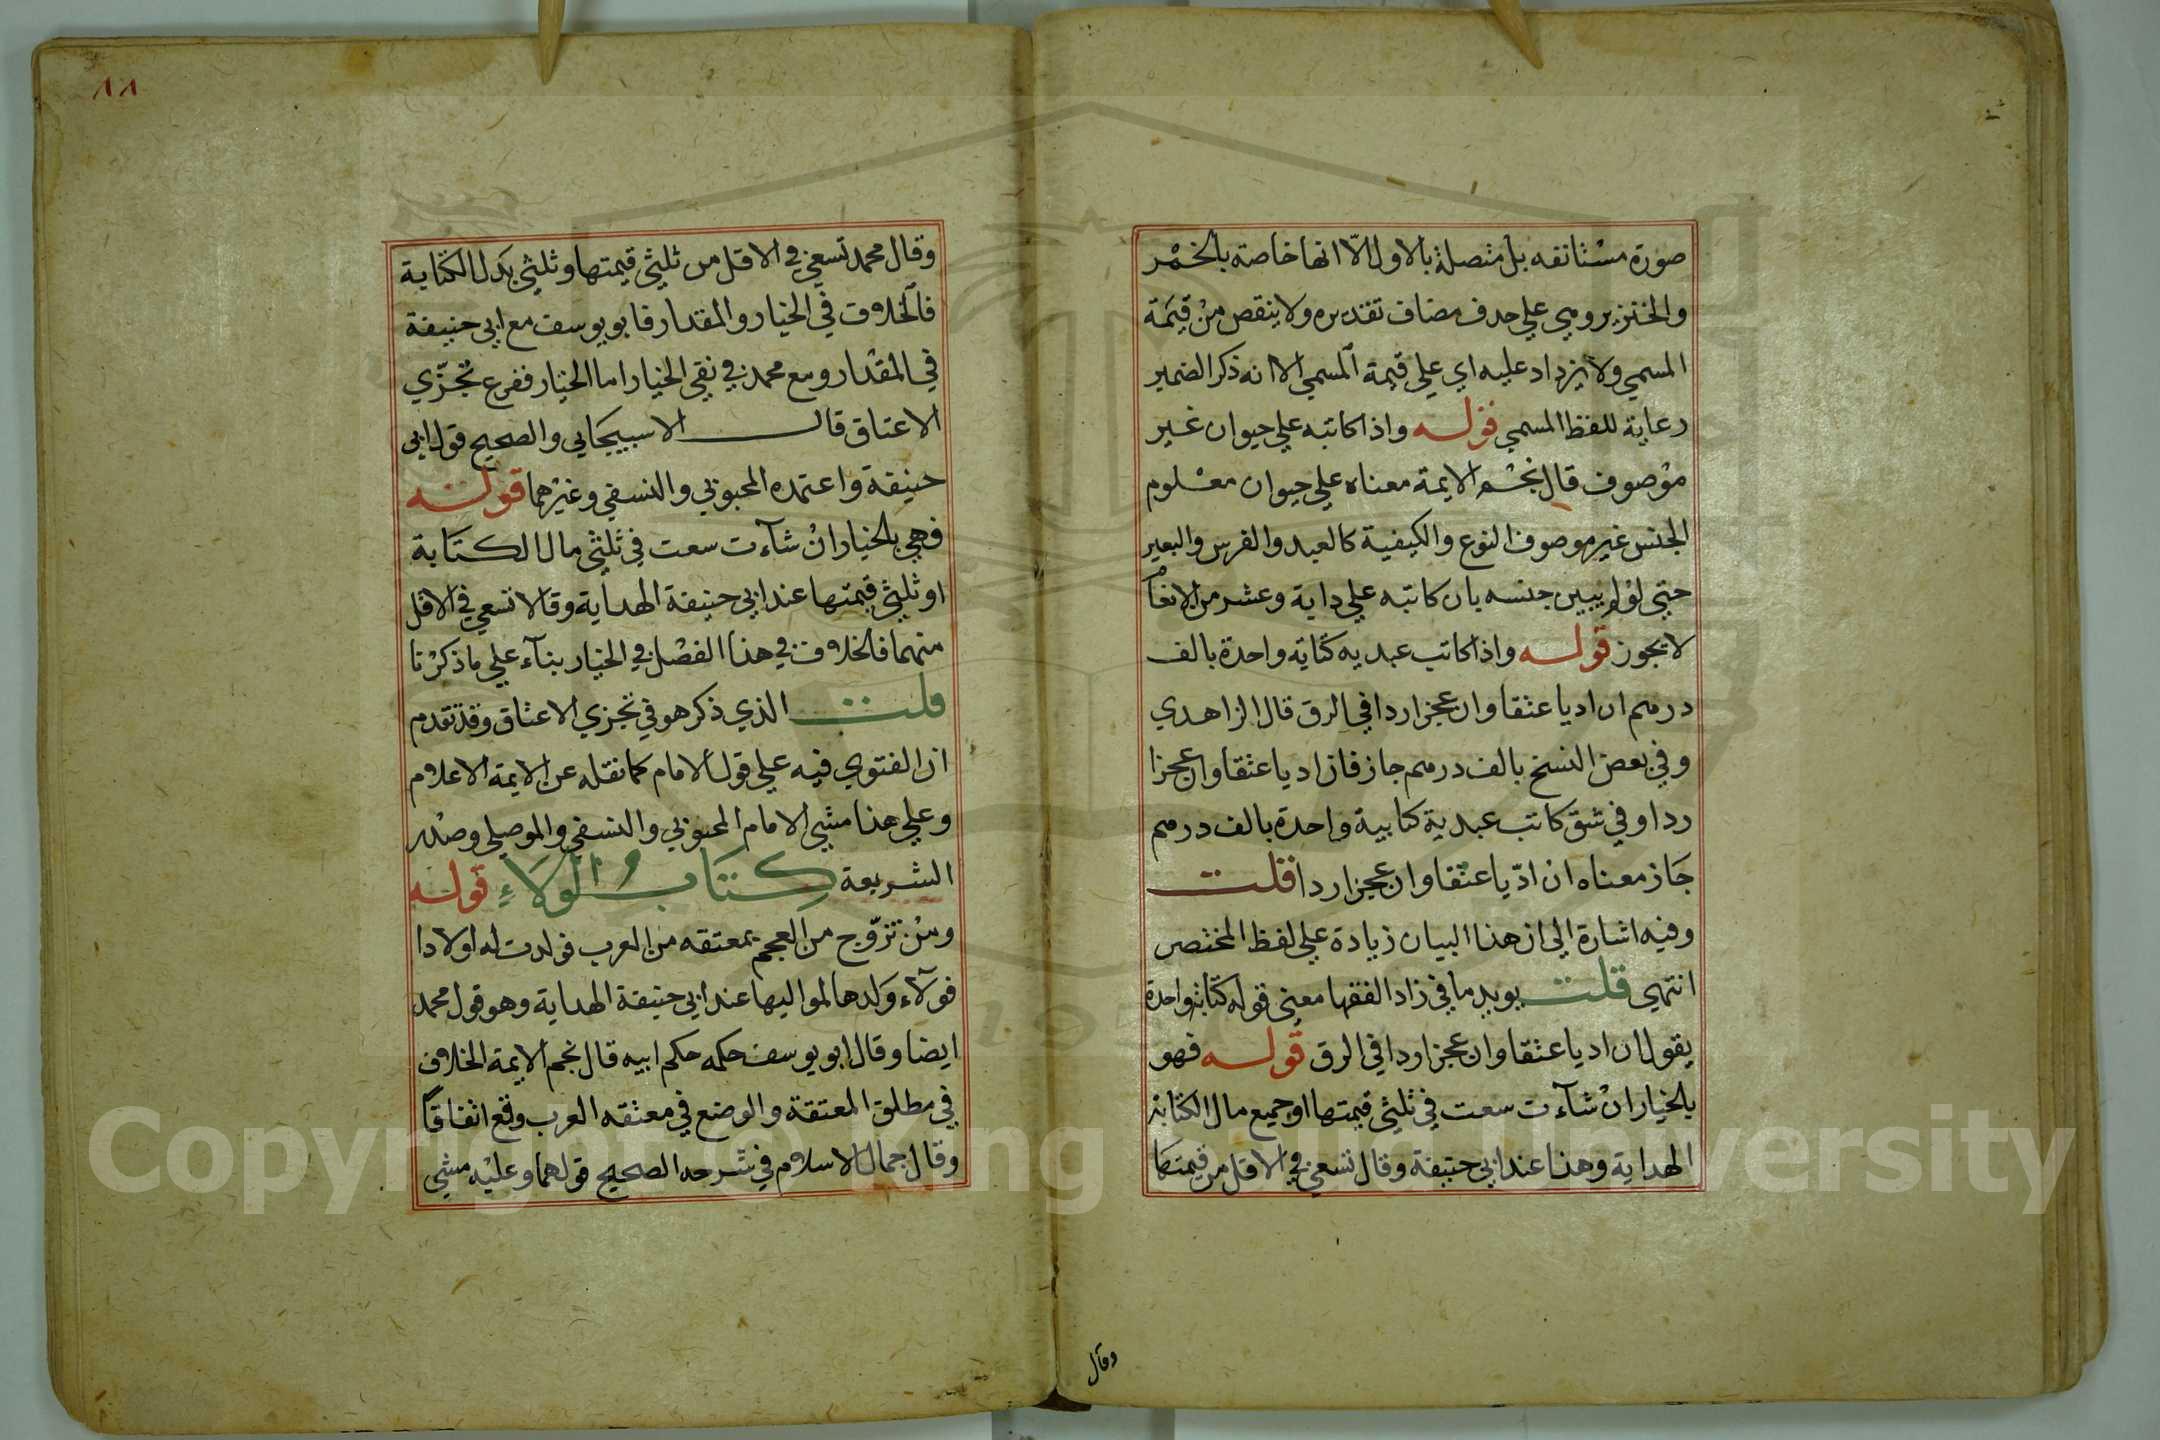 صورة مستانفه بل متصلة بالاول الّا انها خاصة بالخمر
والخنزير ومبي علي حدف مضاف تقديره ولا ينقص من قيمة
المسمي ولا يزداد عليه اي علي قيمة المسمي الا انه ذكر الضمير
رعاية للفظ المسمي قوله واذا كاتبه علي حيوان غير
موصوف قال نجم الايمة معناه علي حيوان معلوم
الجنس غير موصوف النوع والكيفية كالعبد والفرس والبعير
حتي لو لم يبين جنسه بان كاتبه علي داية وعشر من الانعام
لا يجوز قوله واذا كاتب عبديه كتاية واحدة بالف
درهم ان اديا عتقا وان عجزا ردا في الرق قال الزاهدي
وفي بعض النسخ بالف درهم جاز فان اديا عتقا وان عجزا
ردا وفي شق كاتب عبدية كتابية واحدة بالف درهم
جَاز معناه ان ادّيا عتقا وان عجزا ردا قلت
وفيه اشارة الي ان هذا البيان زيادة علي لفظ المختصر
انتهي قلت يويد ما في زاد الفقها معني قوله كتابة واحدة
يقول ان اديا عتقا وان عجزا ردا في الرق قوله فهو
بالخيار انْ شآءت سعت في ثلثي قيمتها او جميع مال الكتابة
الهداية وهذا عند ابي حنيفة وقال تسعي في الاقل من قيمتها
وقال
٨٨
وقال محمد تسعي في الاقل من ثلثي قيمتها وثلثي بدل الكتاية
فالخلاف في الخيار والمقدار فابو يوسف مع ابي حنيفة
في المقدار ومع محمد في نفي الخيار اما الخيار ففرع تجزّي
الاعتاق قال الاسبيجابي والصحيح قول ابي
حنيفة واعتمده المحبوبي والنسفي وغيرهما قوله
فهي بالخيار انْ شآءت سعت في ثلثي مال الكتابة
او ثلثي قيمتها عند ابي حنيفة الهداية وقالا تسعي في الاقل
منهما فالخلاف في هذا الفصل في الخيار بنآء علي ما ذكرنا
قلت الذي ذكر هو في تجزي الاعتاق وقد تقدم
ان الفتوي فيه علي قول الامام كما نقله عن الايمة الاعلام
وعلي هذا مشي الامام المحبوبي والنسفي والموصلي وصدر
الشريعة كِتَابُ الوَلَاءِ قوله
ومن تزوّج من العجم بمعتقه من العرب فولدت له اولادا
فولآء وَلدها لمواليها عند ابي حنيفة الهداية وهو قول محمد
ايضا وقال ابو يوسف حكمه حكم ابيه قال نجم الايمة الخلاف
في مطلق المعتقة والوضع في معتقه العرب وقع اتفاقًا
وقال جمال الاسلام في شرحه الصحيح قولهما وعليه مشي
Copyright © King Saud University